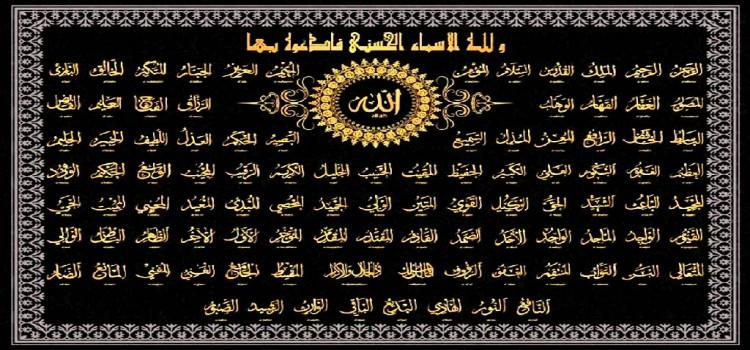 و لله الاسماء الحسنى فادعوه بها
الرحمن الرحيم الملك القدوس السلام المؤمن المهيمن العزيز الجبار المتكبر الخالق البارئ
المصور الغفار القهار الوهاب الله الرزاق الفتاح العليم القابض
الباسط الخافض الرافع المعز المذل السميع البصير الحكم العدل اللطيف الخبير الحليم
العظيم الغفور الشكور العلي الكبير الحفيظ المقيت الحسيب الجليل الكريم الرقيب المجيب الواسع الحكيم الودود
المجيد الباعث الشهيد الحق الوكيل القوي المتين الولي الحميد المحصي المبدئ المعيد المحيي المميت الحي
القيوم الواجد الماجد الواحد الاحد الصمد القادر المقتدر المقدم المؤخر الأول الآخر الظاهر الباطن الوالي
المتعالي البر التواب المنتقم العفو الرؤوف مالك الملك ذو الجلال والإكرام المقسط الجامع الغني المغني المانع الضار
النافع النور الهادي البديع الباقي الوارث الرشيد الصبور